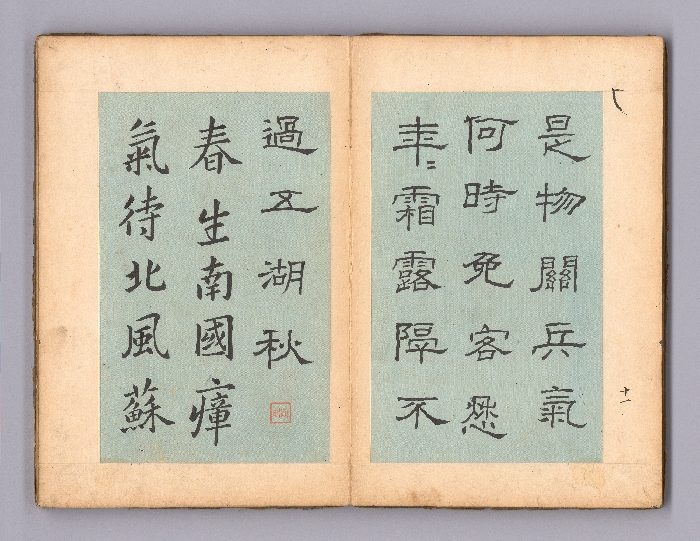 是物關兵氣
何時免客愁
年〻霜露隔不
過五湖秋
春生南國瘴
氣待北風蘇
十一